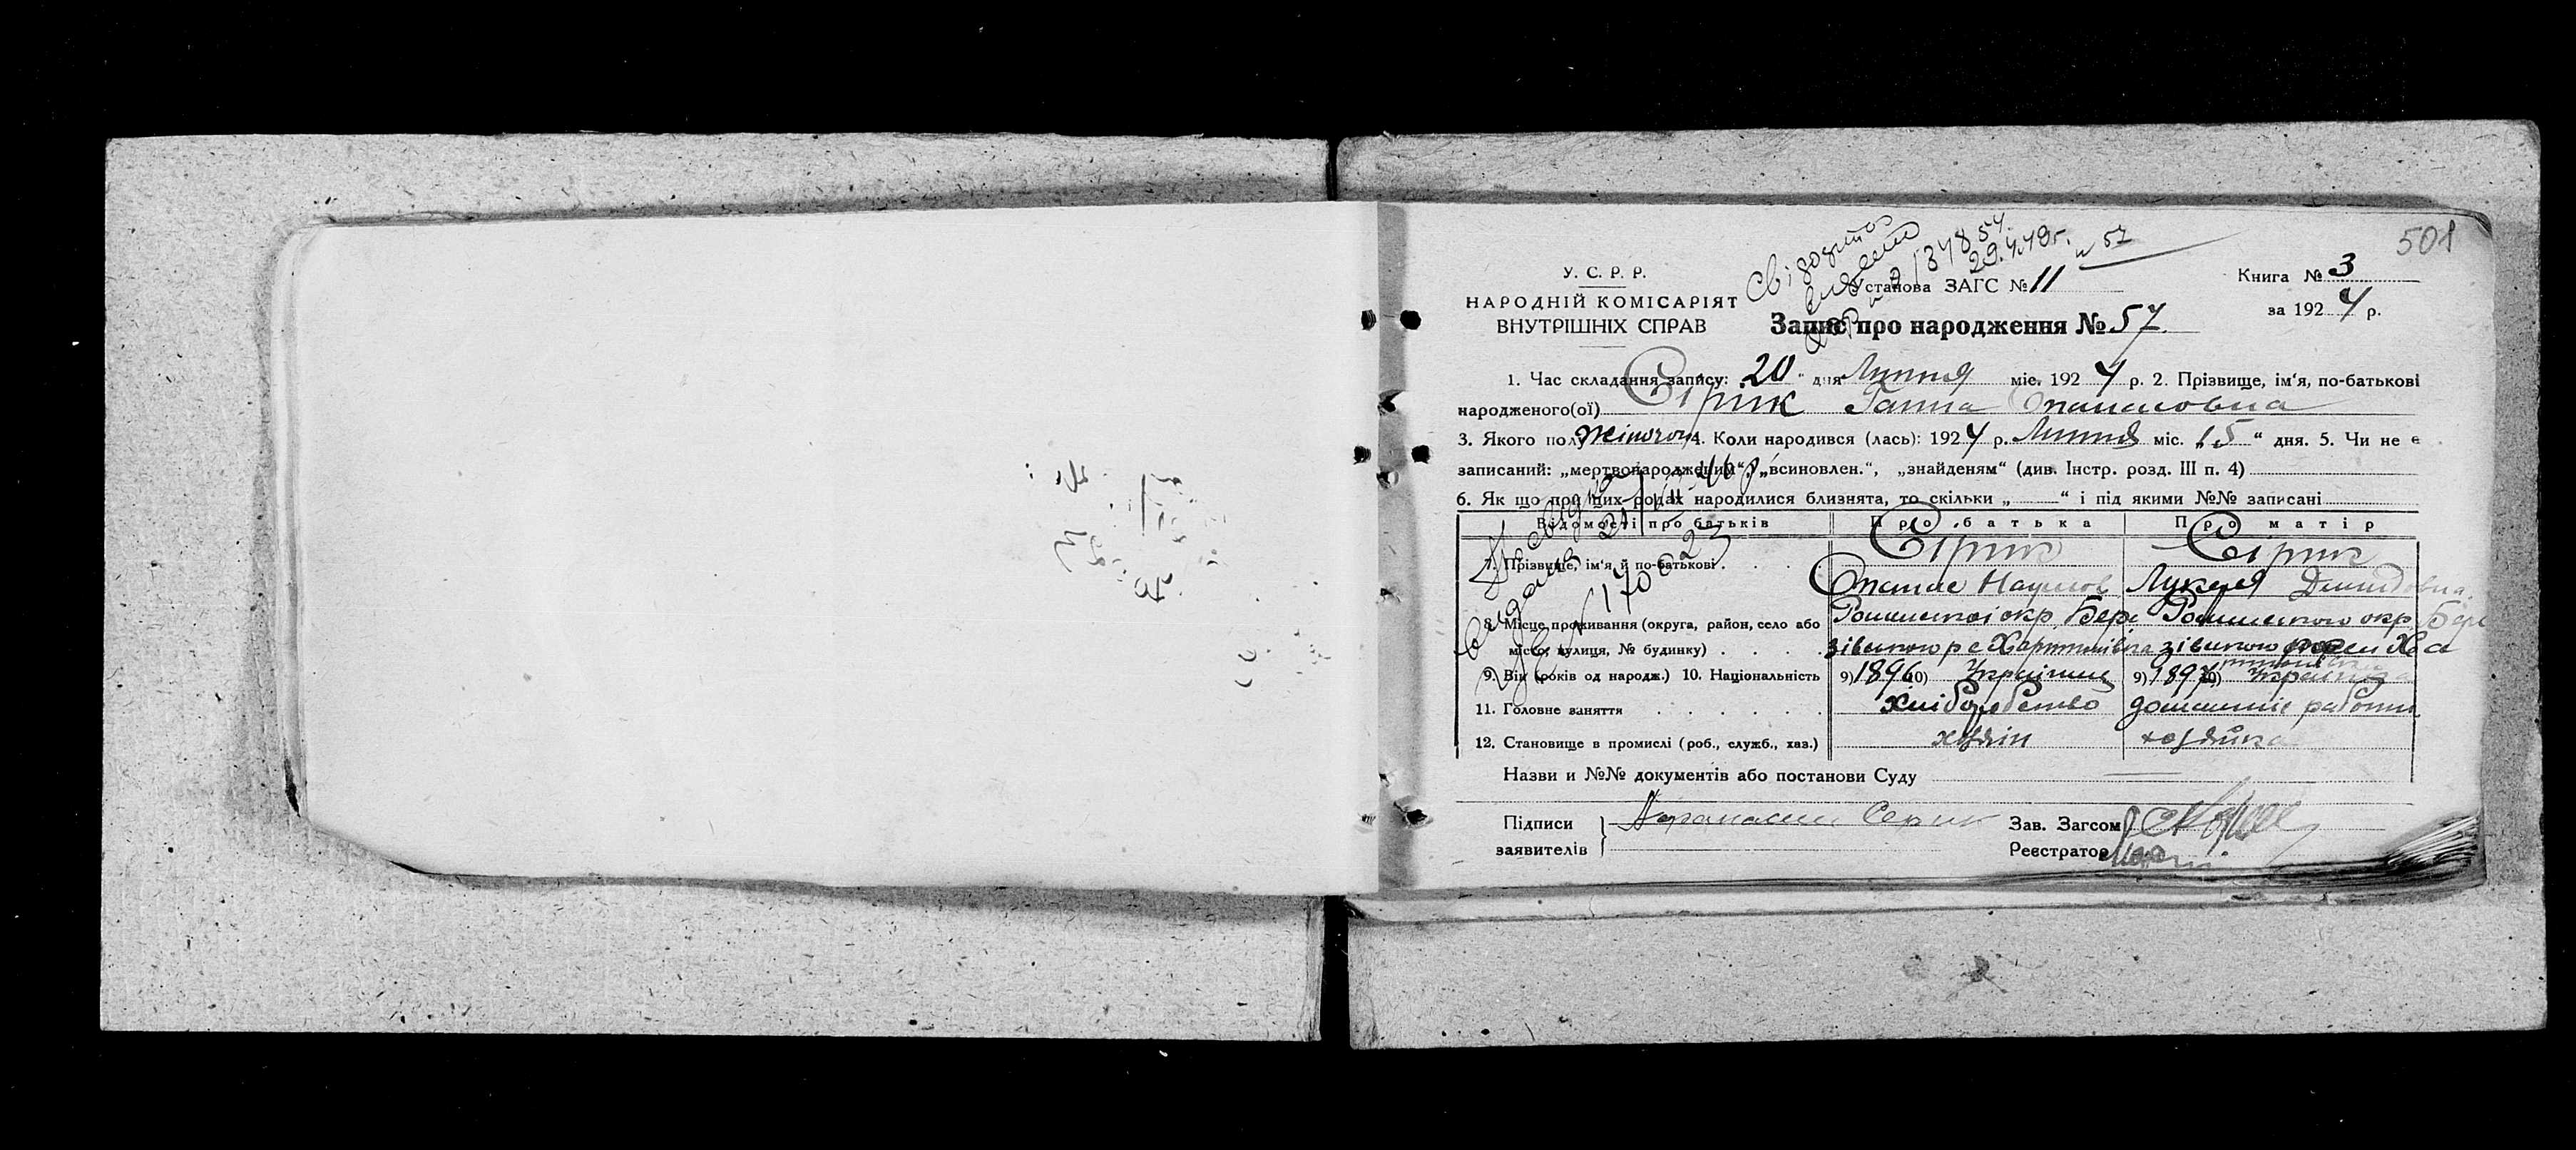 501
У. С. Р. Р.
НАРОДНІЙ КОМІСАРІЯТ
ВНУТРІШНІХ СПРАВ
Установа ЗАГС № 11
Книга № 3
за 1924 р.
Запис про народження № 57
1. Час складання запису: 20 " дня Липня міс. 1924 р. 2. Прізвище, ім'я, по-батькові
народженого(ої) Сірик Ганна Опанасовна
3. Якого полу жіночого 4. Коли народився (лась): 1924 р. Липня міс. „15 “ дня. 5. Чи не є
записаний: „мертвонароджений“, „всиновлен.“, „знайденям“ (див. Інстр. розд. III п. 4)
6. Як що при цих родах народилися близнята, то скільки „ — “ і під якими №№ записані
Відомості про батьків Про батька Про матір
7. Прізвище, ім'я й по-батькові Сірик Сірик
Опанас Наумов Лукеря Демидовна
8. Місце проживання (округа, район, село або Роменської окр. Бере Роменского окр Бере
місто, вулиця, № будинку) зівского
9. Вік (років од народж.) 10. Національність 9) 1896 10) Українец 9) 1897 10) Українка
11. Головне заняття Хліборобство домашние работи
12. Становище в промислі (роб., служб., хаз.) хозяїн хозяйка
Назви и №№ документів або постанови Суду
Підписи
заявителів Афанасий Серик
Зав. Загсом
Реєстратор